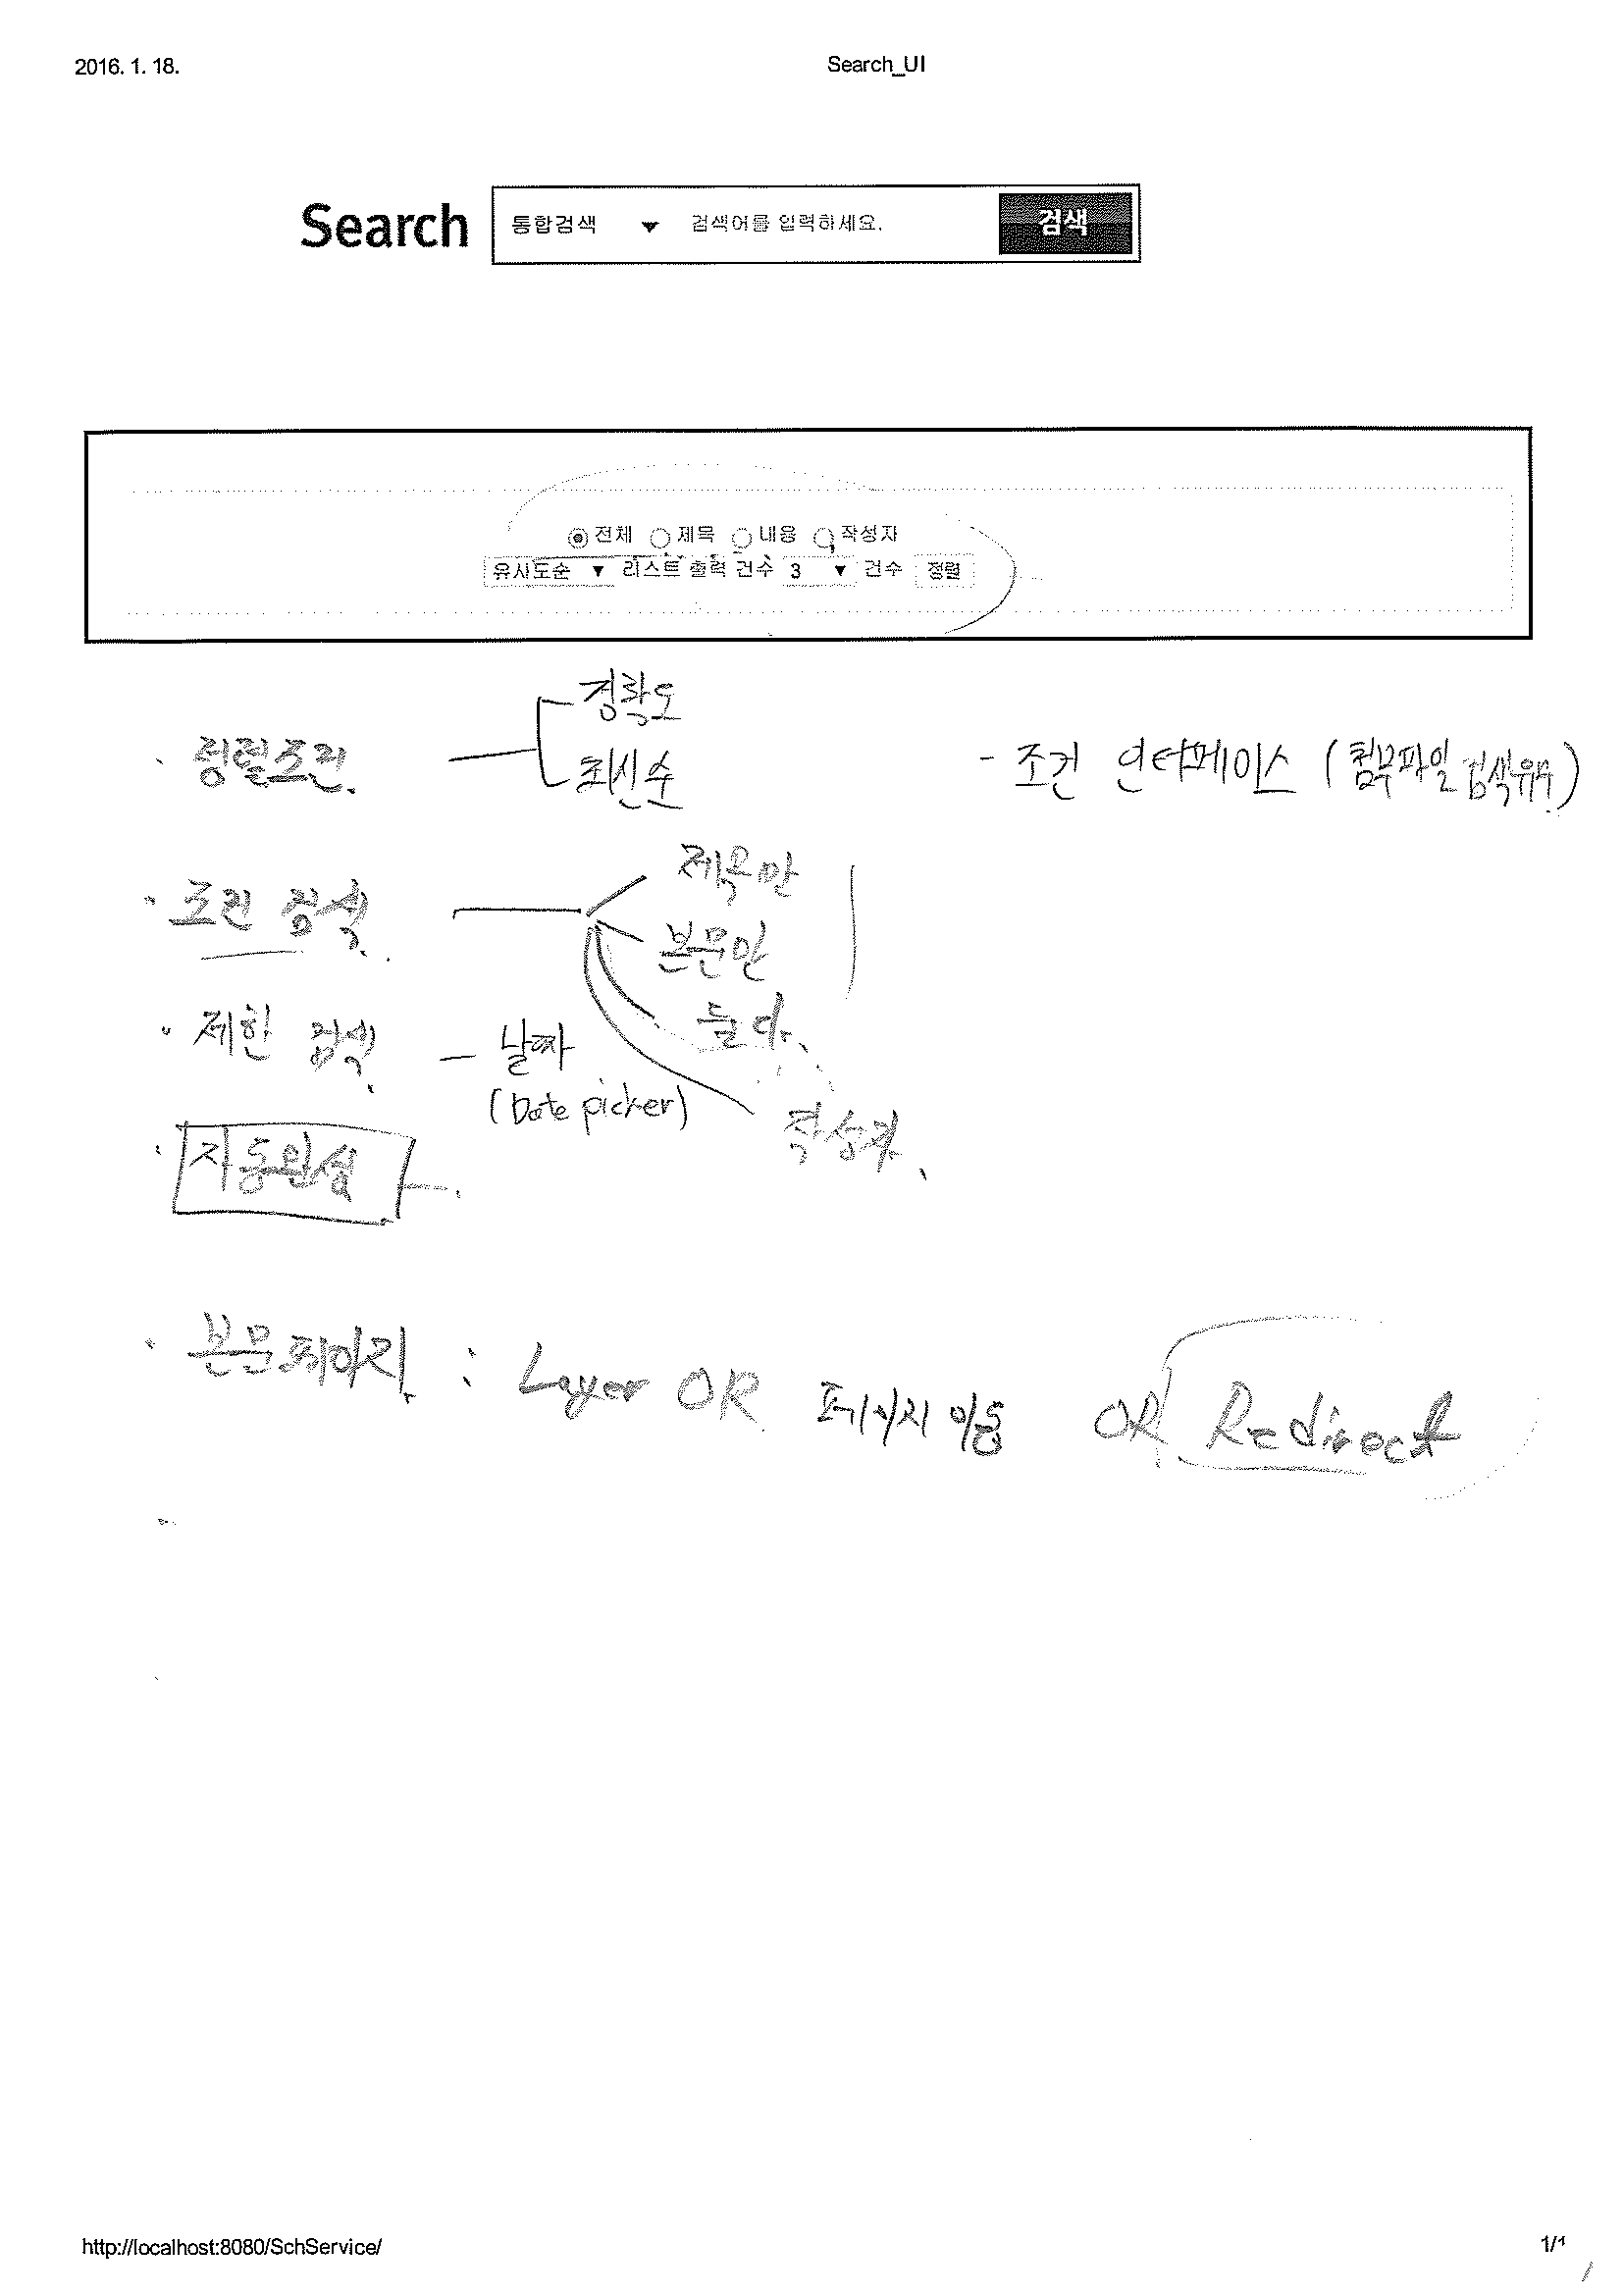 2016. 1. 18.
Search_UI
Search 통합검색 ▼ 검색어를 입력하세요. 검색
전체 제목 내용 작성자
유사도순 ▼ 리스트 출력 건수 3 ▼ 건수 정렬
· 정렬조건.
정확도
최신순
- 조건 인터페이스 (첨부파일 검색유무)
· 조건 검색.
제목만
본문만
둘다.
작성자.
· 제한 검색. - 날짜
(Date picker)
· 자동완성
· 본문페이지 : Layer OR 페이지 이동 OR Redirect
http://localhost:8080/SchService/
1/1